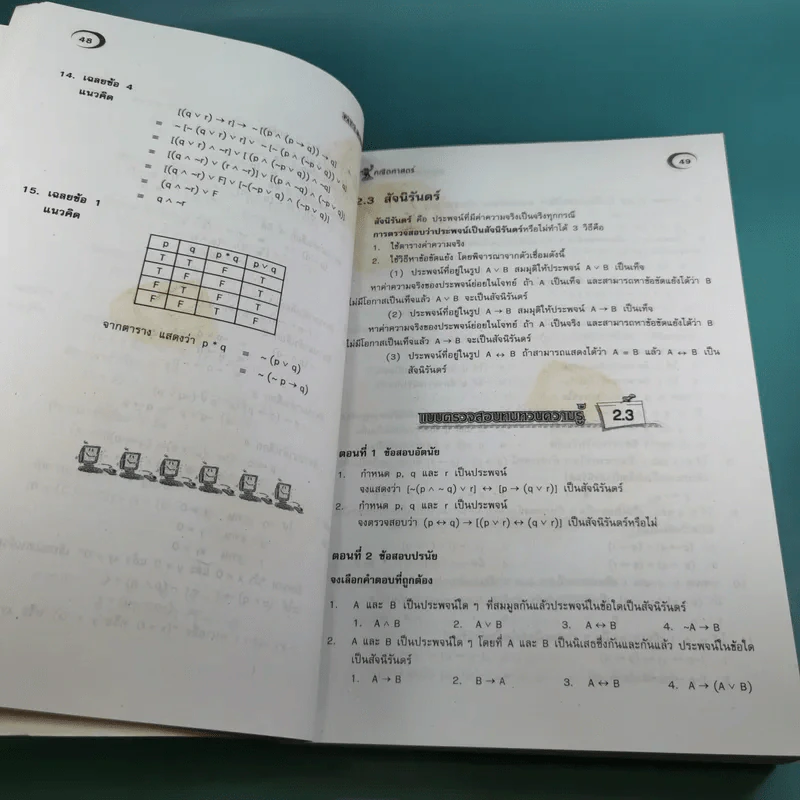 48
14. เฉลยข้อ 4
แนวคิด
[(q ∨ r) → r] → ~[(p ∧ (p → q)) → q]
= ~[~(q ∨ r) ∨ r] ∨ ~[~(p ∧ (~p ∨ q)) ∨ q]
= [(q ∨ r) ∧ ~r] ∨ [(p ∧ (~p ∨ q)) ∧ ~q]
= [(q ∧ ~r) ∨ (r ∧ ~r)] ∨ [(p ∧ ~q) ∧ (~p ∨ q)]
= [(q ∧ ~r) ∨ F] ∨ [~(~p ∨ q) ∧ (~p ∨ q)]
= (q ∧ ~r) ∨ F
= q ∧ ~r
15. เฉลยข้อ 1
แนวคิด
p q p * q p ∨ q
T T F T
T F F T
F T F T
F F T F
จากตาราง แสดงว่า p * q = ~(p ∨ q)
= ~(~p → q)
คณิตศาสตร์
49
2.3 สัจนิรันดร์
สัจนิรันดร์ คือ ประพจน์ที่มีค่าความจริงเป็นจริงทุกกรณี
การตรวจสอบว่าประพจน์เป็นสัจนิรันดร์หรือไม่ทำได้ 3 วิธีคือ
1. ใช้ตารางค่าความจริง
2. ใช้วิธีหาข้อขัดแย้ง โดยพิจารณาจากตัวเชื่อมดังนี้
(1) ประพจน์ที่อยู่ในรูป A ∨ B สมมุติให้ประพจน์ A ∨ B เป็นเท็จ
หาค่าความจริงของประพจน์ย่อยในโจทย์ ถ้า A เป็นเท็จ และสามารถหาข้อขัดแย้งได้ว่า B
ไม่มีโอกาสเป็นเท็จแล้ว A ∨ B จะเป็นสัจนิรันดร์
(2) ประพจน์ที่อยู่ในรูป A → B สมมุติให้ประพจน์ A → B เป็นเท็จ
หาค่าความจริงของประพจน์ย่อยในโจทย์ ถ้า A เป็นจริง และสามารถหาข้อขัดแย้งได้ว่า B
ไม่มีโอกาสเป็นเท็จแล้ว A → B จะเป็นสัจนิรันดร์
(3) ประพจน์ที่อยู่ในรูป A ↔ B ถ้าสามารถแสดงได้ว่า A ≡ B แล้ว A ↔ B เป็น
สัจนิรันดร์
แบบตรวจสอบทบทวนความรู้ 2.3
ตอนที่ 1 ข้อสอบอัตนัย
1. กำหนด p, q และ r เป็นประพจน์
จงแสดงว่า [~(p ∧ ~ q) ∨ r] ↔ [p → (q ∨ r)] เป็นสัจนิรันดร์
2. กำหนด p, q และ r เป็นประพจน์
จงตรวจสอบว่า (p ↔ q) → [(p ∨ r) ↔ (q ∨ r)] เป็นสัจนิรันดร์หรือไม่
ตอนที่ 2 ข้อสอบปรนัย
จงเลือกคำตอบที่ถูกต้อง
1. A และ B เป็นประพจน์ใด ๆ ที่สมมูลกันแล้วประพจน์ในข้อใดเป็นสัจนิรันดร์
1. A ∧ B 2. A ∨ B 3. A ↔ B 4. ~A → B
2. A และ B เป็นประพจน์ใด ๆ โดยที่ A และ B เป็นนิเสธซึ่งกันและกันแล้ว ประพจน์ในข้อใด
เป็นสัจนิรันดร์
1. A → B 2. B → A 3. A ↔ B 4. A → (A ∨ B)